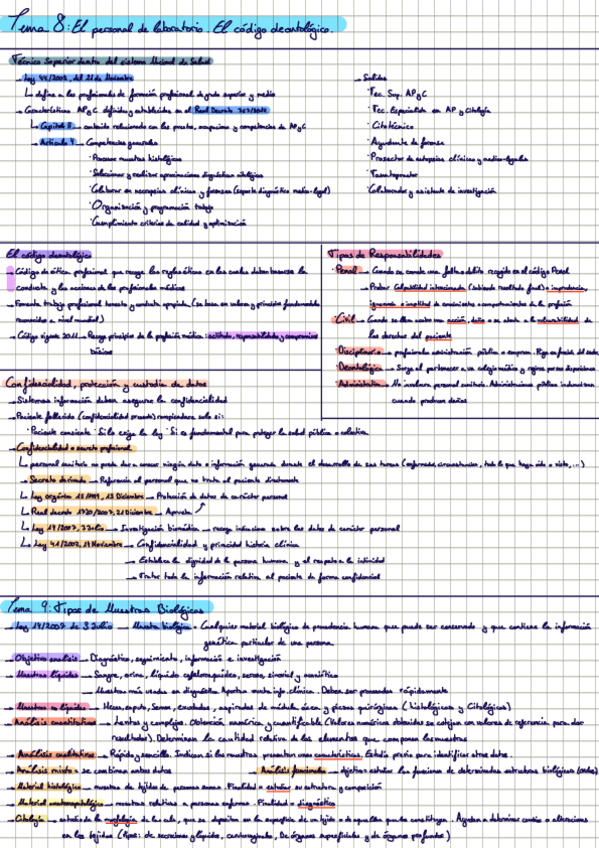 Tema 8: El personal de laboratorio. El código deontológico.
Técnico Superior dentro del sistema Nacional de Salud
Ley 44/2003, del 21 de Noviembre
define a los profesionales de formación profesional de grado superior y medio
Características APyC definidas y establecidas en el Real Decreto
Capítulo contenido relacionado con los puestos, ocupaciones y competencias de APyC
Artículo 4 Competencias generales
· Procesar muestras histológicas
· Seleccionar y realizar aproximaciones diagnósticas citológicas
· Colaborar en necropsias clínicas y forenses (soporte diagnóstico médico-legal)
· Organización y programación trabajo
· Cumplimiento criterios de calidad y optimización
Salidas
· Tec. Sup. APyC
· Tec. Especialista en AP y Citología
· Citotécnico
· Ayudante de forense
· Prosector de autopsias clínicas y médico-legales
· Tanatopractor
· Colaborador y asistente de investigación
El código deontológico
Código de ética profesional que recoge las reglas éticas en las cuales deben basarse la
conducta y las acciones de los profesionales médicos
Fomenta trabajo profesional honesto y conducta apropiada (se basa en valores y principios fundamentales
reconocidos a nivel mundial)
Código vigente 2011 Recoge principios de la profesión médica: solidaridad, responsabilidad y compromisos
básicos
Tipos de Responsabilidades
· Penal Cuando se comete una falta o delito recogido en el código Penal
Puede: Culpabilidad intencionada (sabiendo resultado fatal) o imprudencia,
ignorancia o ineptitud de conocimientos o comportamientos de la profesión
· Civil Cuando se lleva contra una acción, daño o se atenta a la vulnerabilidad de
los derechos del paciente
· Disciplinaria profesionales administración pública o empresa.
· Deontológica Surge al pertenecer a un colegio médico y regirse por sus disposiciones
· Administrativa No involucra personal sanitario. Administraciones públicas indemnizan
cuando producen daños
Confidencialidad, protección y custodia de datos
Sistemas información deben asegurar la confidencialidad
Paciente fallecido (confidencialidad prevalece) rompiéndose solo si:
· Paciente consiente · Si lo exige la ley · Si es fundamental para proteger la salud pública o colectiva
Confidencialidad o secreto profesional
personal sanitario no puede dar a conocer ningún dato o información generada durante el desarrollo de sus tareas (enfermedad, circunstancias, todo lo que haya oído o visto,...)
Secreto derivado Referencia al personal que no trata al paciente directamente
Ley orgánica 15/1999, 13 Diciembre Protección de datos de carácter personal
Real decreto 1720/2007, 21 Diciembre Aprueba
Ley 14/2007, 3 Julio Investigación biomédica recoge indicaciones sobre los datos de carácter personal
Ley 41/2002, 14 Noviembre Confidencialidad y privacidad historia clínica
Establece la dignidad de la persona humana y el respeto a la intimidad
Tratar toda la información relativa al paciente de forma confidencial
Tema 9: Tipos de Muestras Biológicas
Ley 14/2007 de 3 Julio Muestra biológica = Cualquier material biológico de procedencia humana que puede ser conservado y que contiene la información
genética particular de una persona.
Objetivo análisis Diagnóstico, seguimiento, información e investigación
Muestras líquidas Sangre, orina, líquido cefalorraquídeo, seroso, sinovial y amniótico
Muestras más usadas en diagnóstico. Aportan mucha inf. clínica. Deben ser procesadas rápidamente
Muestras no líquidas Heces, esputo, semen, exudados, aspirados de médula ósea y piezas quirúrgicas (histológicas y citológicas)
Análisis cuantitativos Lentos y complejos. Obtención numérica y cuantificable (Valores numéricos obtenidos se cotejan con valores de referencia para dar
resultados). Determinan la cantidad relativa de los elementos que componen las muestras
Análisis cualitativos Rápido y sencillo. Indican si las muestras presentan unas características. Estudio previo para identificar otros datos.
Análisis mixto se combinan ambos datos
Análisis funcionales objetivo estudiar las funciones de determinadas estructuras biológicas
Material histológico muestras de tejidos de personas sanas. Finalidad = estudiar su estructura y composición
Material anatomopatológico muestras relativas a personas enfermas. Finalidad = diagnóstico
Citología estudio de la morfología de las células, que se depositan en la superficie de un tejido o de aquellas que lo constituyen. Ayudan a determinar cambios o alteraciones
en los tejidos (tipos: de secreciones y líquidos, De órganos superficiales y de órganos profundos)